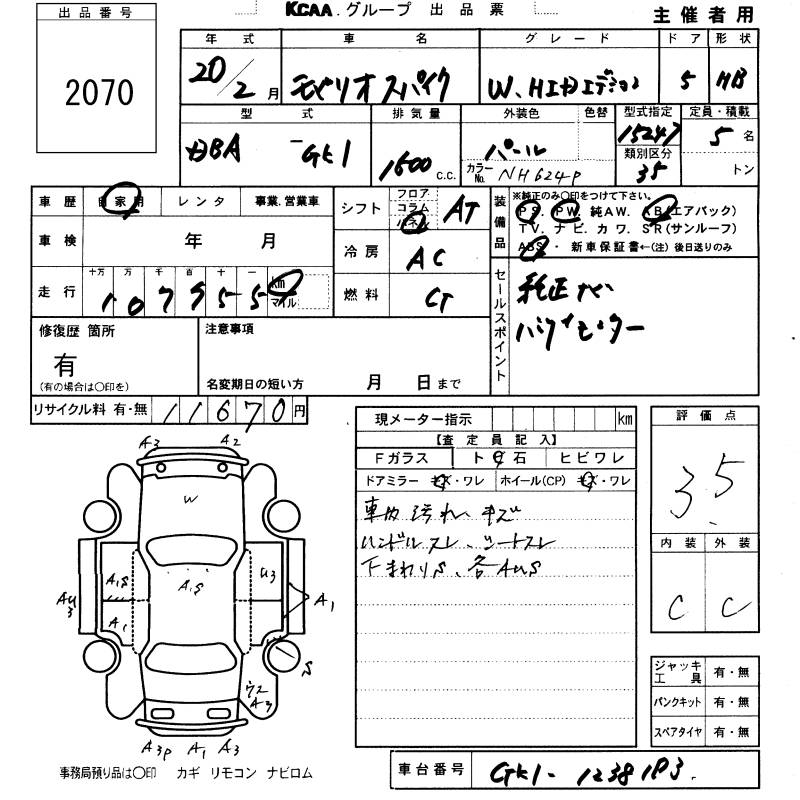 KCAA.グループ 出品票
主催者用
出品番号
2070
年式 車名 グレード ドア 形状
20/2月 モビリオスパイク W、HIDエデション 5 HB
型式 排気量 外装色 色替 型式指定 定員・積載
DBA-GK1 1500c.c. パール 15247 5名
カラーNo. NH624P 類別区分 35 トン
車歴 自家用 レンタ 事業.営業車
シフト フロア コラム パネル AT
装備品 ※純正のみ○印をつけて下さい。
PS. PW. 純AW. AB(エアバック)
TV. ナビ. カワ. SR(サンルーフ)
ABS・ 新車保証書←(注)後日送りのみ
車検 年 月
冷房 AC
走行 十万 万 千 百 十 一 km マイル
107955
燃料
セールスポイント
純正ナビ
修復歴 箇所
有
(有の場合は○印を)
注意事項
名変期日の短い方 月 日まで
リサイクル料 有・無 11670円
現メーター指示 km
【査定員記入】
Fガラス ト 石 ヒビワレ
ドアミラー キズ・ワレ ホイール(CP) キズ・ワレ
車内汚れ、キズ
ハンドルスレ、シートスレ
下まわりS、各AUS
評価点
3.5
内装 外装
C C
A3 A2
W
A,S
A,S U3
AU3 A1
A1
S
A3
A3P A1 A3
ジャッキ工具 有・無
パンクキット 有・無
スペアタイヤ 有・無
事務局預り品は○印 カギ リモコン ナビロム
車台番号 GK1-1238183